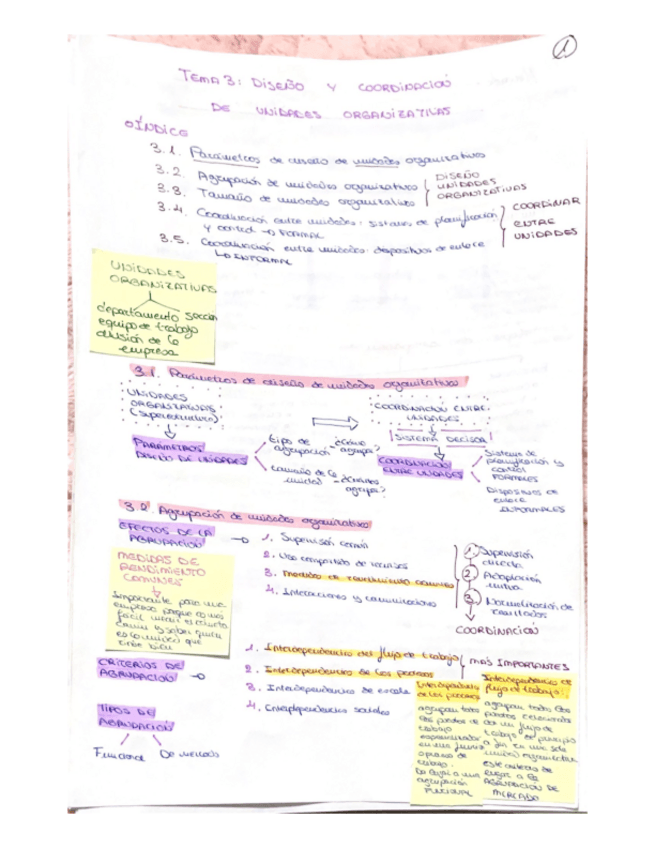 1
TEMA 3: DISEÑO Y COORDINACIÓN
DE UNIDADES ORGANIZATIVAS
ÍNDICE
3.1. Parámetros de diseño de unidades organizativas
3.2. Agrupación de unidades organizativas
3.3. Tamaño de unidades organizativas
DISEÑO
UNIDADES
ORGANIZATIVAS
3.4. Coordinación entre unidades: sistemas de planificación
y control → FORMAL
3.5. Coordinación entre unidades: dispositivos de enlace
INFORMAL
COORDINAR
ENTRE
UNIDADES
UNIDADES
ORGANIZATIVAS
departamento sección
equipo de trabajo
división de la
empresa
3.1. Parámetros de diseño de unidades organizativas
UNIDADES
ORGANIZATIVAS
(superestructura)
COORDINACIÓN ENTRE
UNIDADES
PARÁMETROS
DISEÑO DE UNIDADES
tipo de
agrupación
¿cómo
agrupa?
tamaño de la
unidad
¿cuántos
agrupa?
SISTEMA DECISOR
COORDINACIÓN
ENTRE UNIDADES
Sistemas de
planificación y
control
FORMALES
Dispositivos de
enlace
INFORMALES
3.2. Agrupación de unidades organizativas
EFECTOS DE LA
AGRUPACIÓN
1. Supervisión común
2. Uso compartido de recursos
3. Medidas de rendimiento comunes
4. Interacciones y comunicaciones
1 Supervisión
directa
2 Adaptación
mutua
3 Normalización de
resultados
COORDINACIÓN
MEDIDAS DE
RENDIMIENTO
COMUNES
Importante para una
empresa porque es más
fácil
CRITERIOS DE
AGRUPACIÓN
1. Interdependencias del flujo de trabajo
2. Interdependencias de los procesos
MÁS IMPORTANTES
3. Interdependencias de escala
4. Interdependencias sociales
TIPOS DE
AGRUPACIÓN
Funcional De mercado
Interdependencias
de los procesos
agrupan todos
los puestos de
trabajo
especializados
en una función
o proceso de
trabajo.
agrupación
FUNCIONAL
Interdependencias de
flujo de trabajo
agrupan todos los
puestos relacionados
con un flujo de
trabajo de principio
a fin en una sola
unidad organizativa
este criterio da
lugar a la
AGRUPACIÓN DE
MERCADO